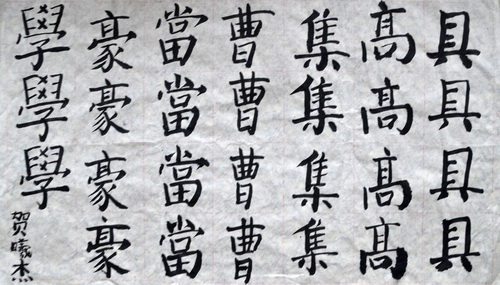 具具具具
高高高高
集集集集
曹曹曹曹
當當當當
豪豪豪豪
學學學
贺曦杰